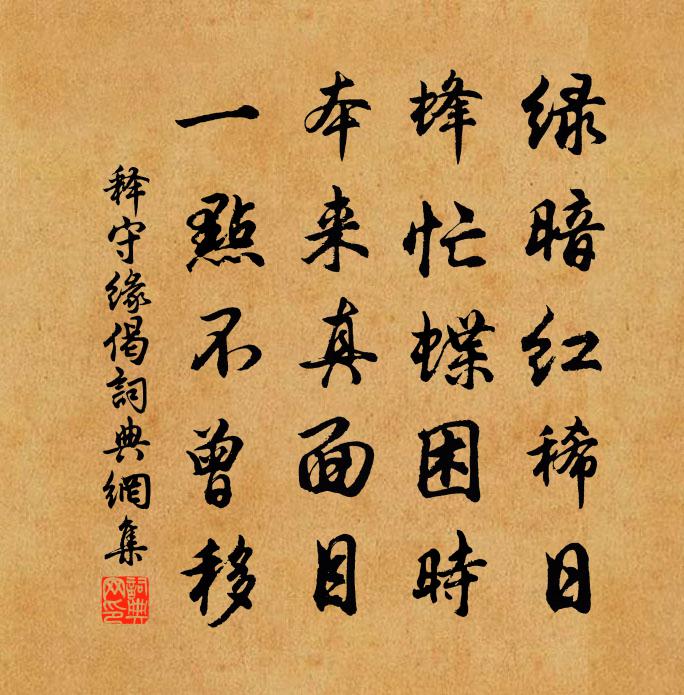 绿暗红稀日
蜂忙蝶困時
本来真面目
一點不曾移
释守缘偈詞典網集
詞典網印